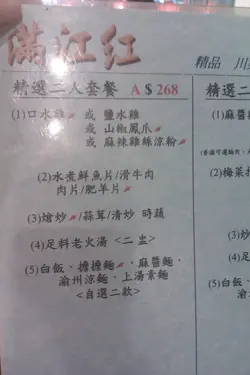 滿江紅
精品 川
精選二人套餐 A $ 268
(1)口水雞 或 鹽水雞
或 山椒鳳爪
或 麻辣雞絲涼粉
(2)水煮鮮魚片/滑牛肉
肉片/肥羊片
(3)熗炒/蒜茸/清炒 時蔬
(4)足料老火湯 <二盅>
(5)白飯、擔擔麵、麻醬麵、
渝州涼麵、上湯素麵
<自選二款>
精選二
(1)麻醬
(2)梅菜
(3)
(4)
(5)